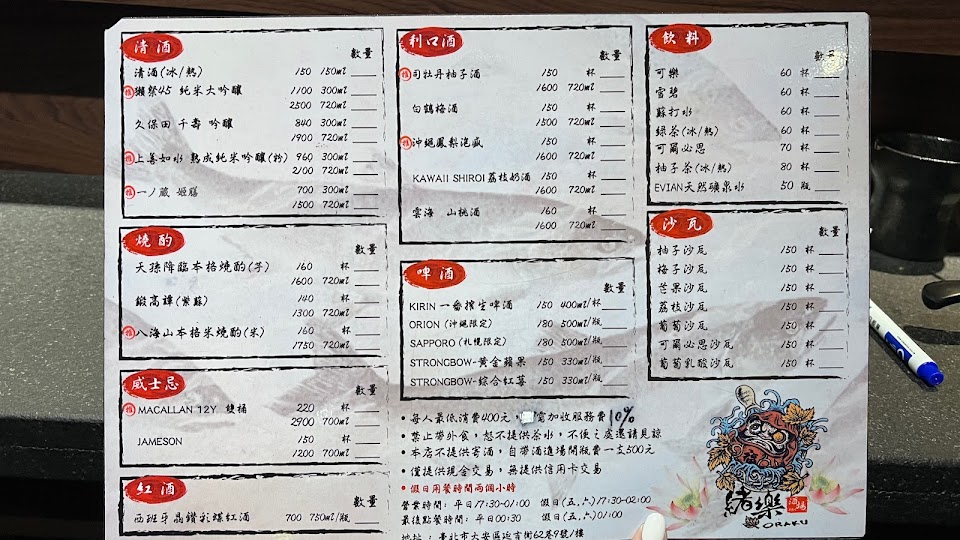 清酒
數量
清酒(冰/熱) 150 150ml
推 獺祭45 純米大吟釀 1100 300ml
2500 720ml
久保田 千壽 吟釀 840 300ml
1900 720ml
推 上善如水 熟成純米吟釀(粉) 960 300ml
2100 720ml
推 一ノ蔵 姬膳 700 300ml
1500 720ml
燒酌
數量
天孫降臨本格燒酌(芋) 160 杯
1600 720ml
鍛高譚(紫蘇) 140 杯
1300 720ml
推 八海山本格米燒酌(米) 160 杯
1750 720ml
威士忌
數量
推 MACALLAN 12Y 雙桶 220 杯
2900 700ml
JAMESON 150 杯
1200 700ml
紅酒
數量
西班牙晶鑽彩蝶紅酒 700 750ml/瓶
利口酒
數量
推 司牡丹柚子酒 150 杯
1600 720ml
白鶴梅酒 150 杯
1500 720ml
推 沖繩鳳梨泡盛 150 杯
1600 720ml
KAWAII SHIROI 荔枝奶酒 150 杯
1600 720ml
雲海 山桃酒 160 杯
1600 720ml
啤酒
數量
KIRIN 一番搾生啤酒 150 400ml/杯
ORION (沖繩限定) 180 500ml/瓶
SAPPORO (札幌限定) 180 500ml/瓶
STRONGBOW-黃金蘋果 150 330ml/瓶
STRONGBOW-綜合紅莓 150 330ml/瓶
• 每人最低消費400元, 需加收服務費10%
• 禁止帶外食,恕不提供茶水,不便之處還請見諒
• 本店不提供寄酒,自帶酒進場開瓶費一支500元
• 僅提供現金交易,無提供信用卡交易
• 假日用餐時間兩個小時
營業時間: 平日17:30-01:00 假日(五、六)17:30-02:00
最後點餐時間: 平日00:30 假日(五、六)01:00
地址:臺北市大安區延吉街62巷9號1樓
飲料
數量
可樂 60 杯
雪碧 60 杯
蘇打水 60 杯
綠茶(冰/熱) 60 杯
可爾必思 70 杯
柚子茶(冰/熱) 80 杯
EVIAN天然礦泉水 50 瓶
沙瓦
數量
柚子沙瓦 150 杯
梅子沙瓦 150 杯
芒果沙瓦 150 杯
荔枝沙瓦 150 杯
葡萄沙瓦 150 杯
可爾必思沙瓦 150 杯
葡萄乳酸沙瓦 150 杯
緒樂 酒場
ORAKU